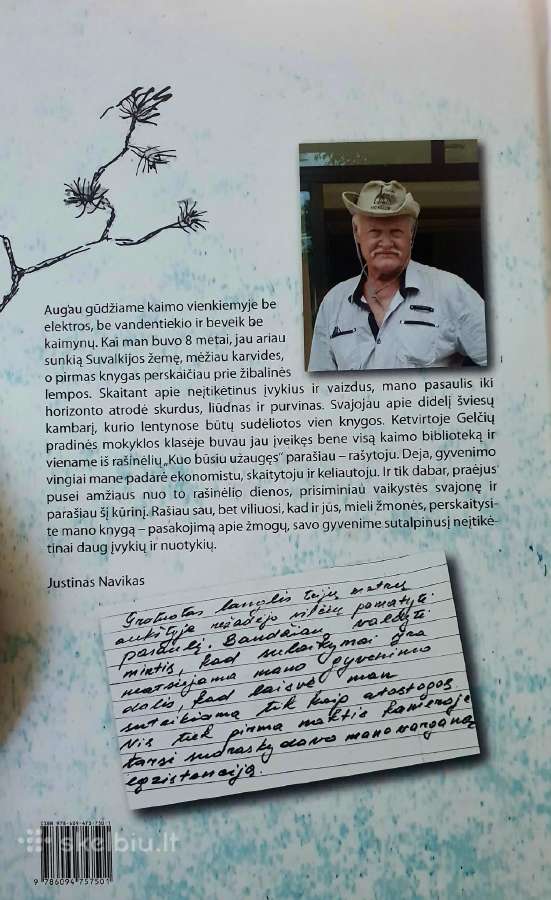 Augau gūdžiame kaimo vienkiemyje be
elektros, be vandentiekio ir beveik be
kaimynų. Kai man buvo 8 metai, jau ariau
sunkią Suvalkijos žemę, mėžiau karvides,
o pirmas knygas perskaičiau prie žibalinės
lempos. Skaitant apie neįtikėtinus įvykius ir vaizdus, mano pasaulis iki
horizonto atrodė skurdus, liūdnas ir purvinas. Svajojau apie didelį šviesų
kambarį, kurio lentynose būtų sudėliotos vien knygos. Ketvirtoje Gelčių
pradinės mokyklos klasėje buvau jau įveikęs bene visą kaimo biblioteką ir
viename iš rašinėlių „Kuo būsiu užaugęs" parašiau – rašytoju. Deja, gyvenimo
vingiai mane padarė ekonomistu, skaitytoju ir keliautoju. Ir tik dabar, praėjus
pusei amžiaus nuo to rašinėlio dienos, prisiminiau vaikystės svajonę ir
parašiau šį kūrinį. Rašiau sau, bet viliuosi, kad ir jūs, mieli žmonės, perskaitysi-
te mano knygą – pasakojimą apie žmogų, savo gyvenime sutalpinusį neįtikė-
tinai daug įvykių ir nuotykių.
Justinas Navikas
Grotuotas langelis trijų metrų
aukštyje nežadėjo vilčių pamatyti
pasaulį. Bandžiau valdyti
mintis, kad sulaikymai yra
neatsiejama mano gyvenimo
dalis, kad laisvė man
suteikiama tik kaip atostogos.
Vis tiek pirma naktis kameroje
tarsi sudraskydavo mano varganą
egzistenciją.
ISBN 978-609-475-750-1
skelbiu.lt
9 786094 757501